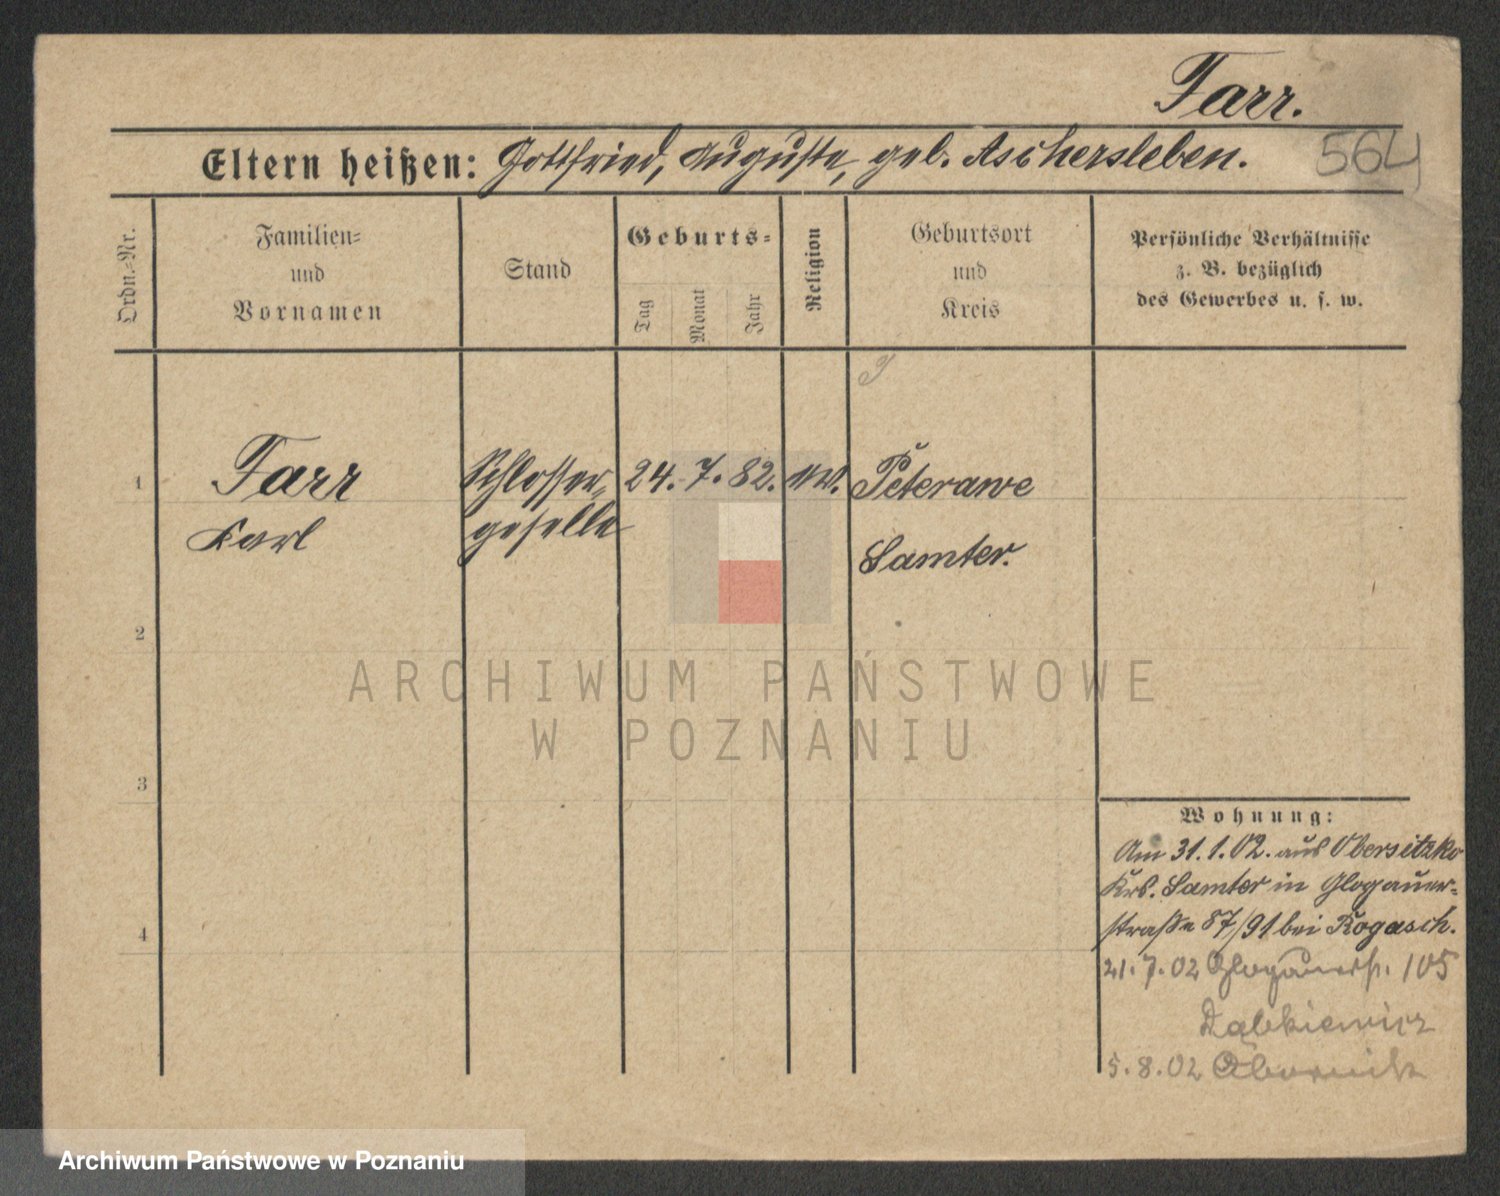 Farr.
Eltern heißen: Gottfried, Auguste, geb. Aschersleben.
564
Ordn.-Nr.
Familien-
und
Vornamen
Stand
Geburts-
Tag
Monat
Jahr
Religion
Geburtsort
und
Kreis
Persönliche Verhältnisse
z. B. bezüglich
des Gewerbes u. s. w.
1
Farr
Karl
Schlosser-
geselle
24. 7. 82.
ev.
Peterawe
Samter.
2
3
4
Wohnung:
Am 31.1.02. aus Obersitzko
Krs. Samter in Glogauer-
straße 87/91 bei Rogasch.
21.7.02 Glogauerstr. 105
Dąbkiewicz
5.8.02 Obornik
ARCHIWUM PAŃSTWOWE
W POZNANIU
Archiwum Państwowe w Poznaniu